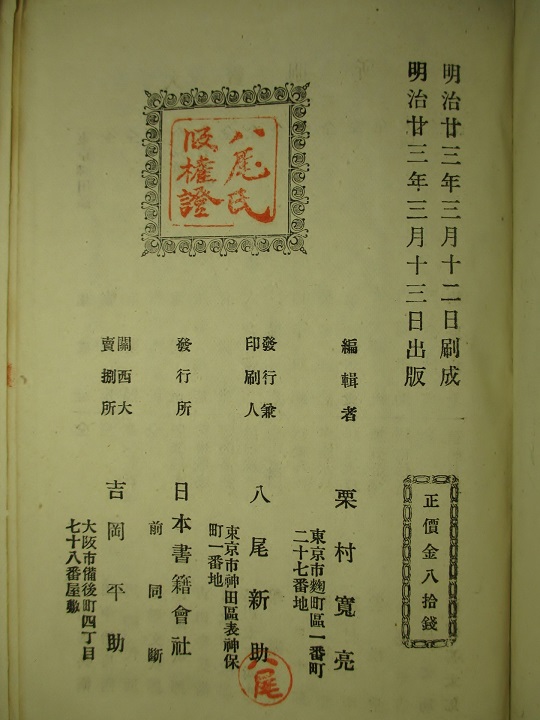 明治廿三年三月十二日刷成
明治廿三年三月十三日出版
正價金八拾錢
八尾氏
版權證
編輯者
栗村寬亮
東京市麴町區一番町
二十七番地
發行兼
印刷人
八尾新助
東京市神田區表神保
町一番地
八尾
發行所
日本書籍會社
前同斷
關西大
賣捌所
吉岡平助
大阪市備後町四丁目
七十八番屋敷